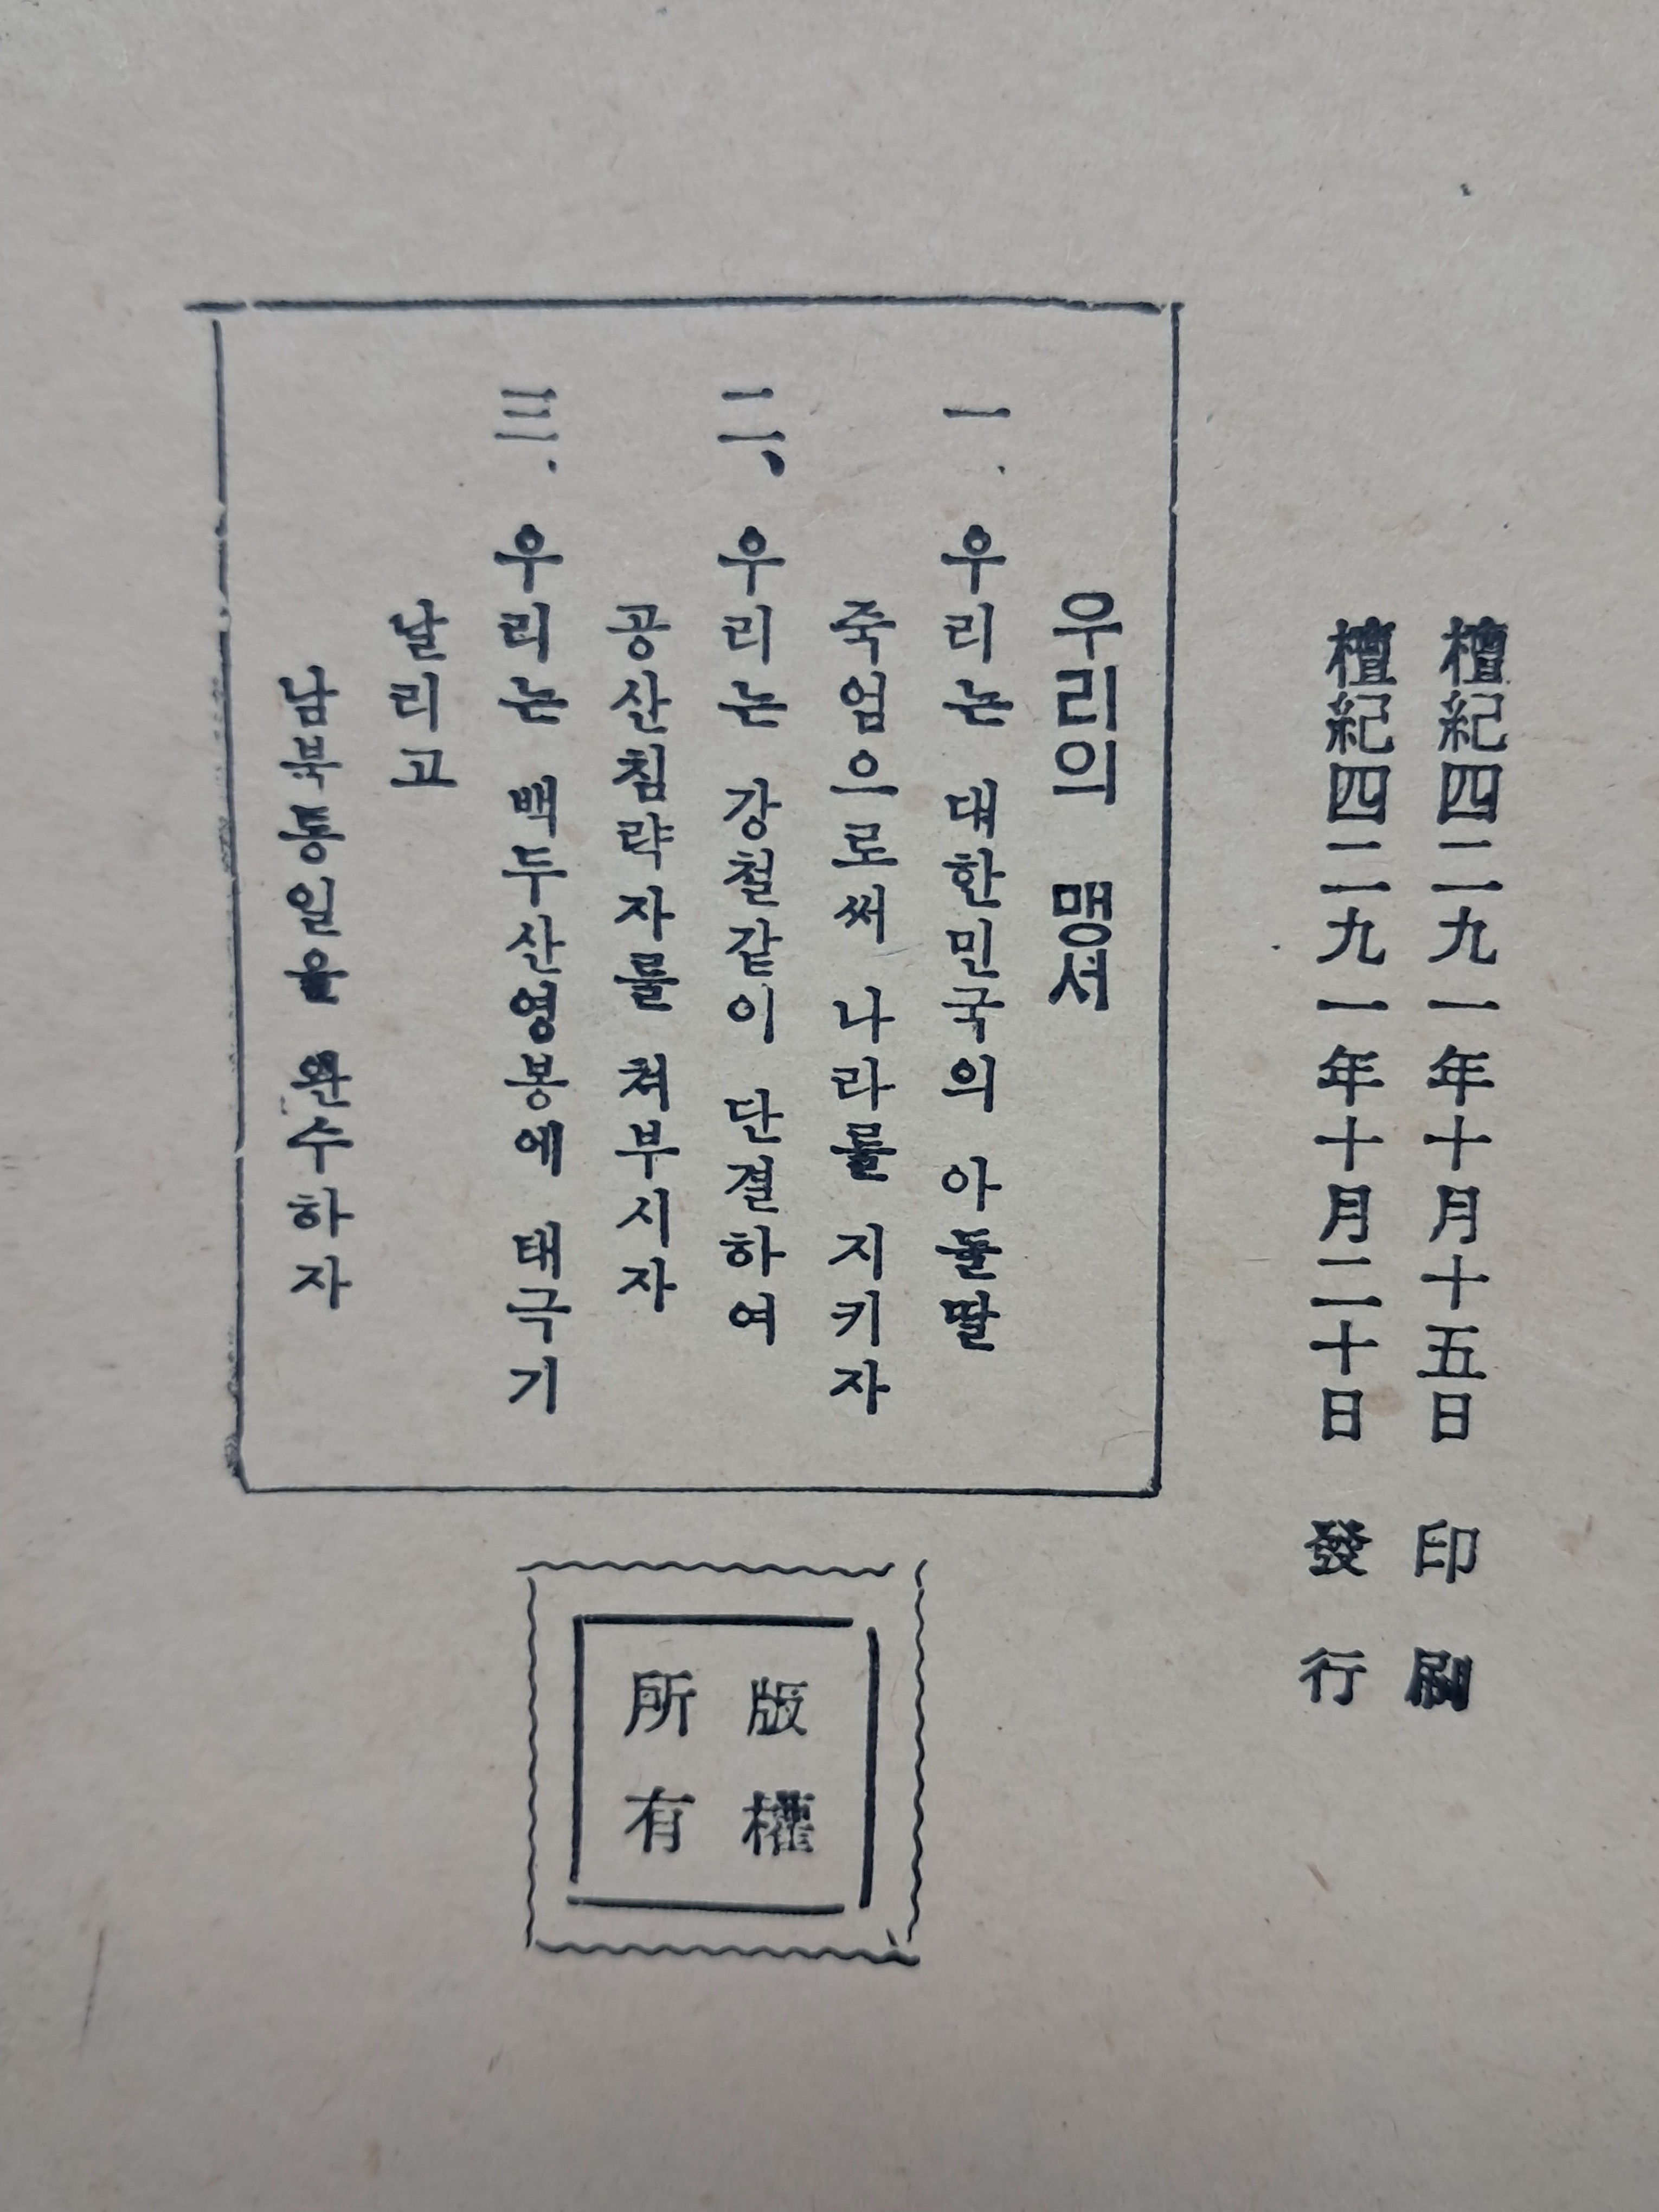 檀紀四二九一年十月十五日 印刷
檀紀四二九一年十月二十日 發行
우리의 맹서
一. 우리는 대한민국의 아들딸
죽엄으로써 나라를 지키자
二、 우리는 강철같이 단결하여
공산침략자를 쳐부시자
三. 우리는 백두산영봉에 태극기
날리고
남북통일을 완수하자
版權
所有